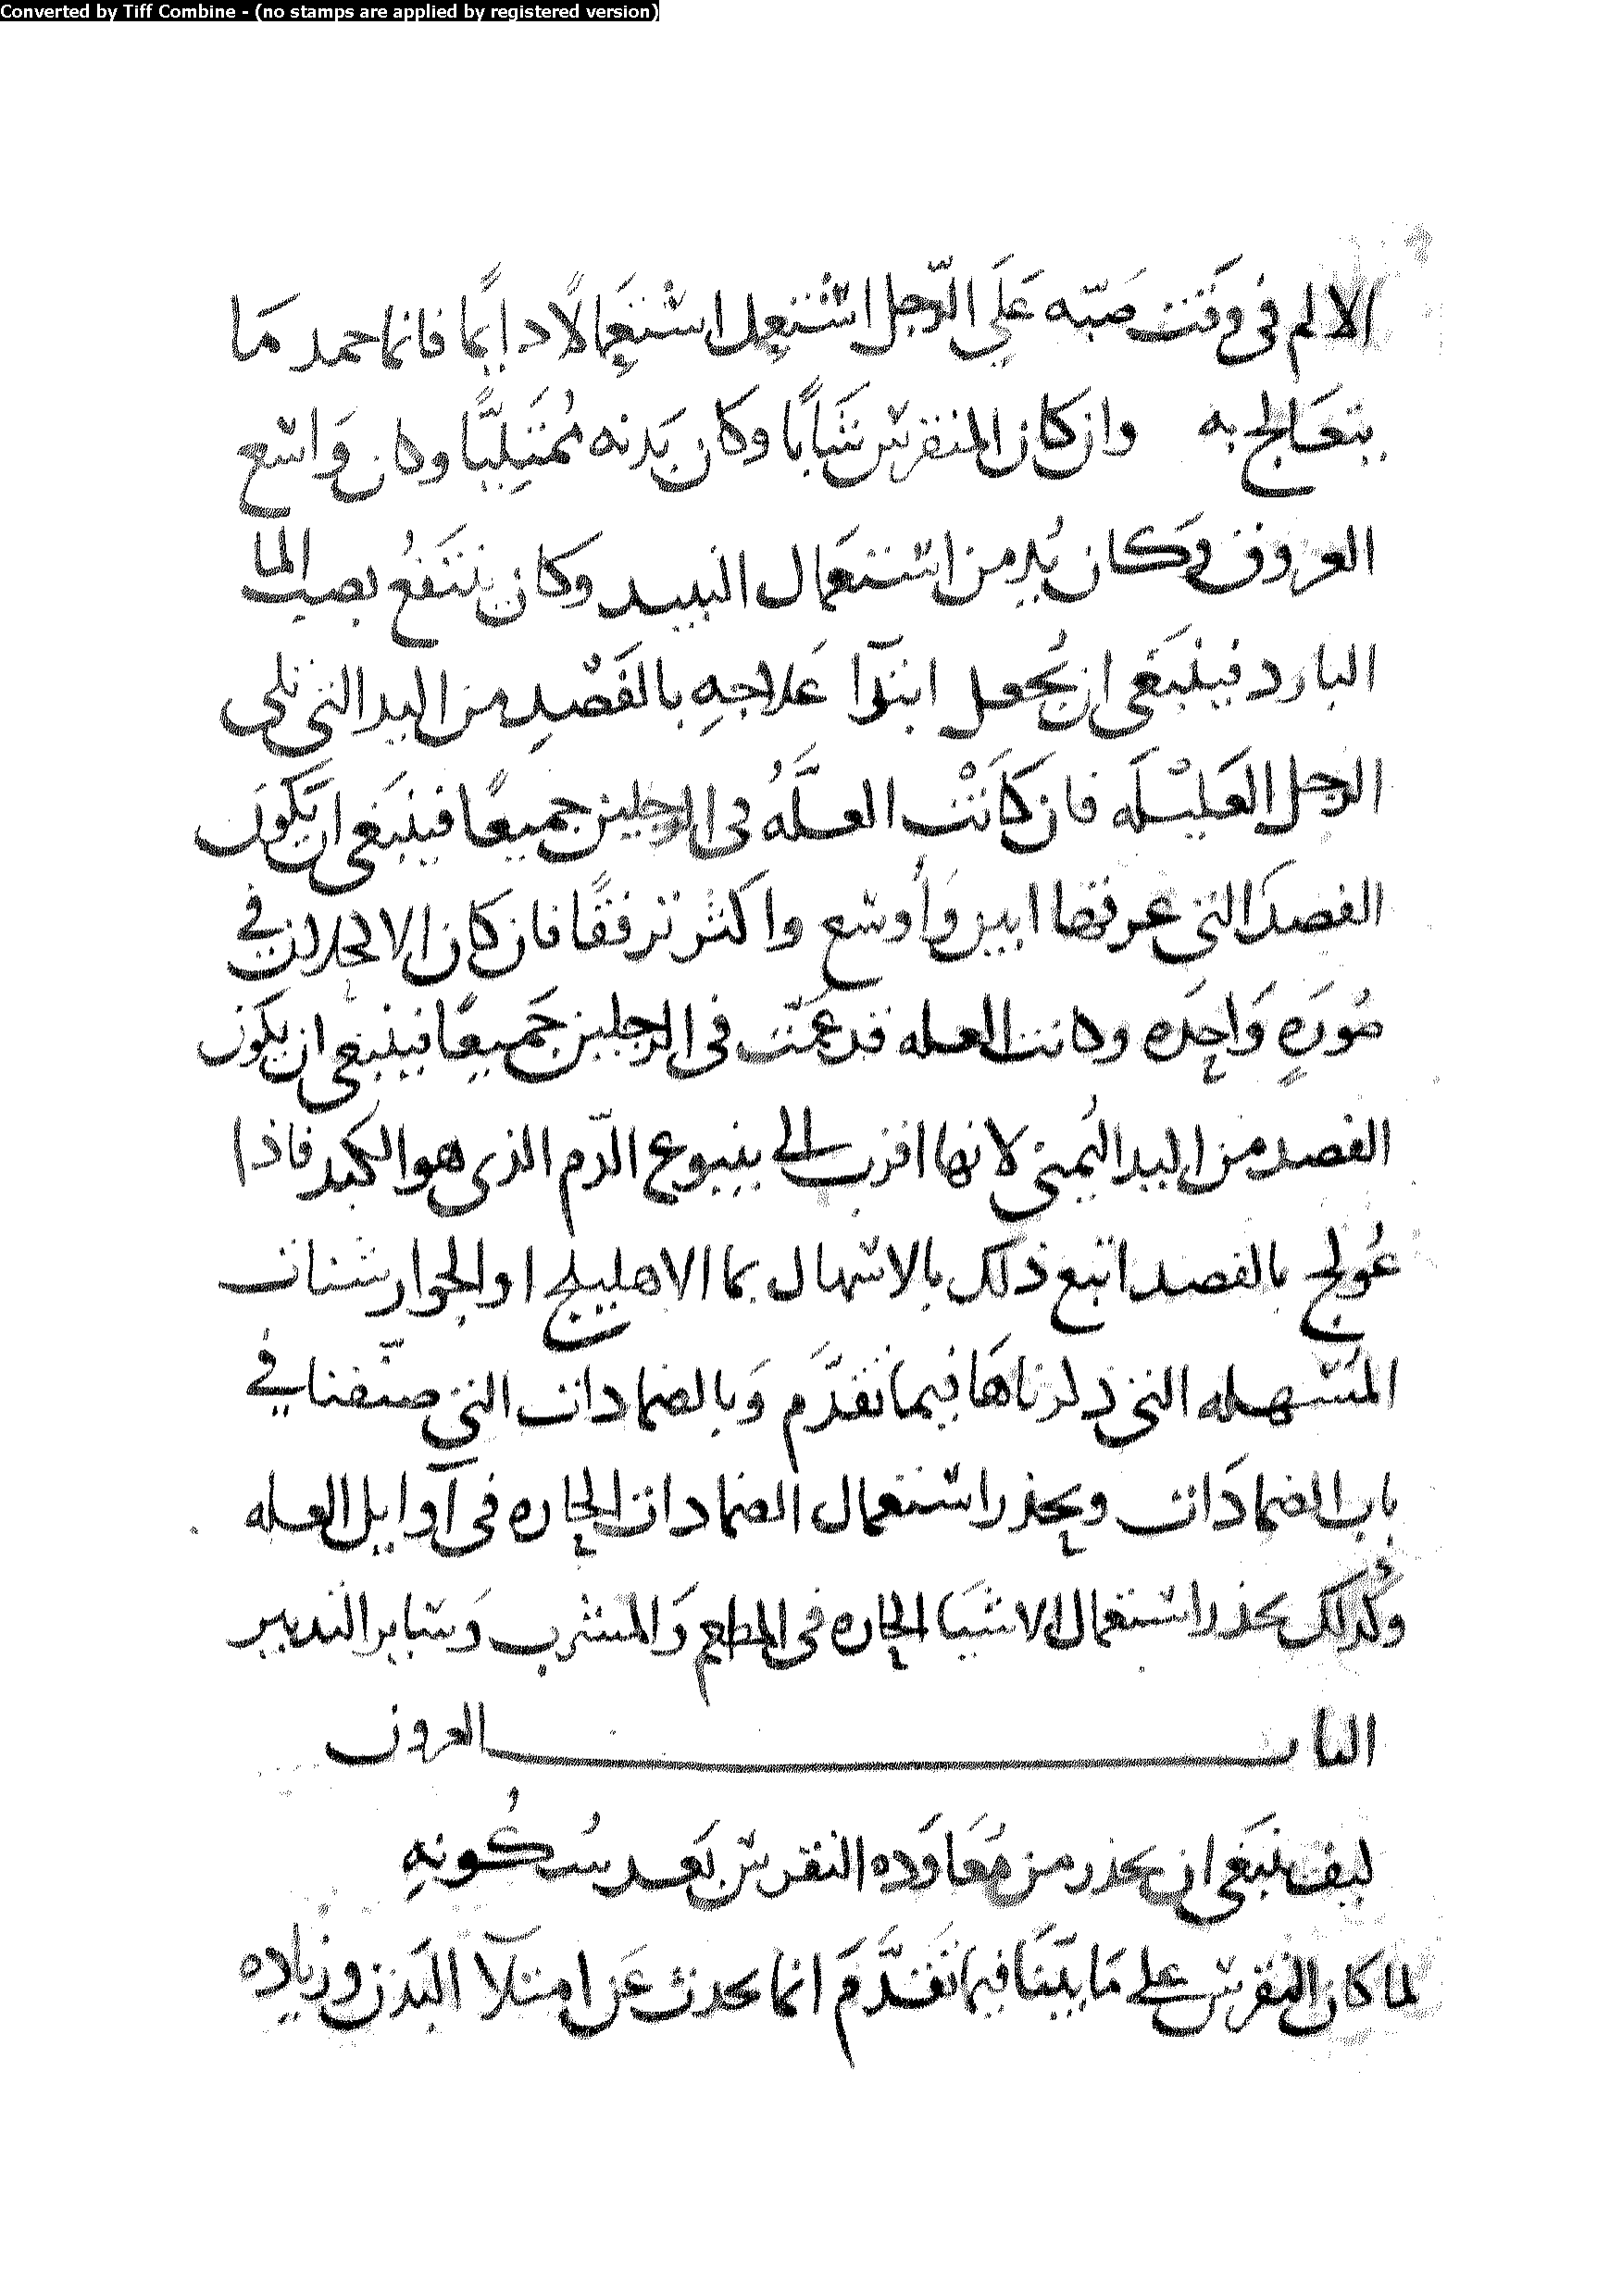 Converted by Tiff Combine - (no stamps are applied by registered version)
الالم فى وقت صَبّه عَلَي الرّجل استُعمِل استعمَالًا دايمًا فانما احمد مَا
يتعَالج به وان كان المنقرس شَابًا وكان بَدنه مُمتَلِيًا وكان وَاسع
العروق وَكان يُدمن استعمَال النبيد وكان يَنتَفعُ بصب الما
البارد فينبَغى ان يُجعل ابتدآ عَلاجهِ بالفَصْدِ من اليد التى تلى
الرجل العَليْلَه فان كَانَتْ العلَّهُ فى الرجلين جميعًا فينبَغى ان يَكون
الفصدَ التى عروقها ابين وَأوسع واكثر ترفقًا فان كان الا فى
صُورَهٍ وَاحِدَه وكانت العله قد عَمّت فى الرجلين جَميعًا فينبغى ان يكَون
الفصد من اليد اليُمنى لانها اقرب الى ينبوع الدّم الذى هو الكبد فاذا
عُولج بالفصد اتبع ذلك بالاسهال بما الاهليلج او الجوارشنات
المَسهله التى ذكرناهَا فيما تقدَّم وَبالضمادات التى صنّفنا في
باب الضمادَات ويحذر استعمال الضمادات الحاره فى آوايل العله
وكُذلك يحذر استعمال الاشيَا الحاره فى المطعم وَالمشرب وَساير التدبير
الباب العرون
كيف ينبَغى ان يحذر من مُعَاوَده النقرس بَعد سُكُونهِ
لما كان النقرس على مَا بيّنّا فيما تَقدَّمَ انما يحدث عَن امتلآ البَدن وزياده